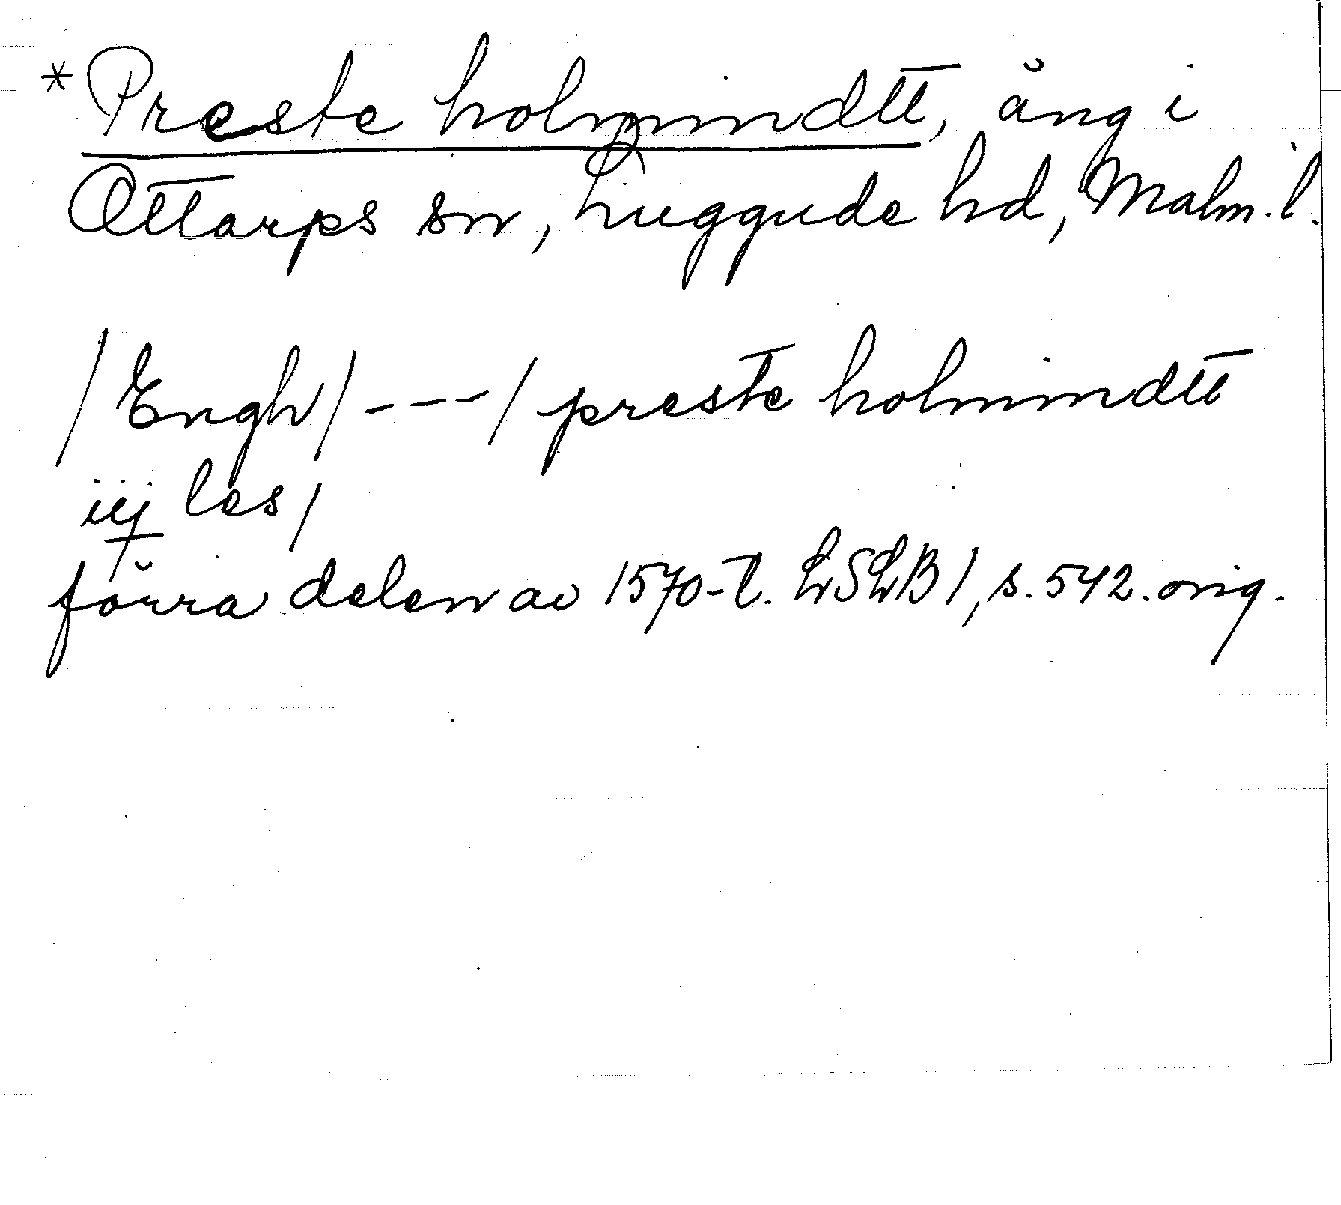 *Preste holmindtt, äng i
Ottarps sn, Luggude hd, Malm. l.
/Engh/ --- / preste holmindtt
iij les/
förra delen av 1570-t. LSLB 1, s. 542. orig.